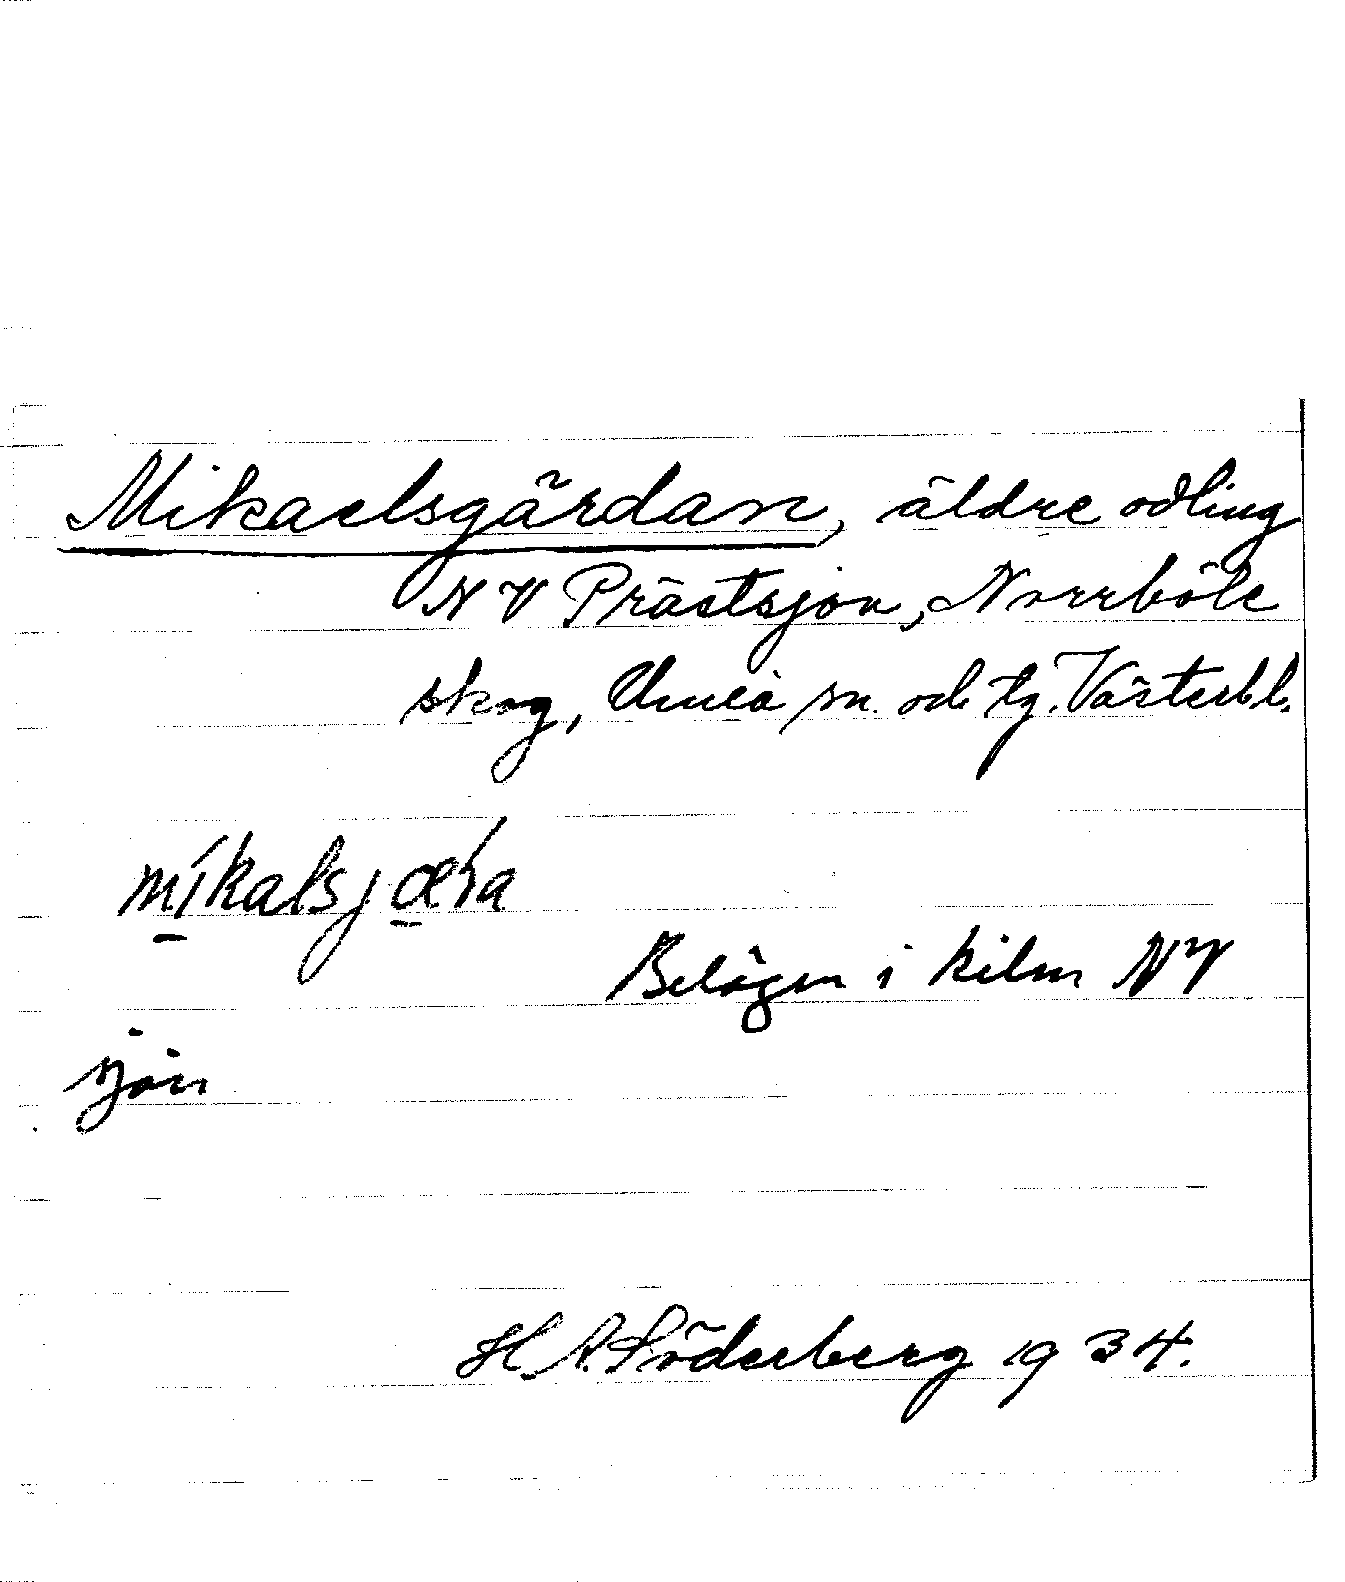 Mikaelsgärdan, äldre odling
NV Prästsjön, Norrböle
skog, Umeå sn. och tg. Västerb.l.
Belägen i kilen NV
sjön
H. A. Söderberg 1934.